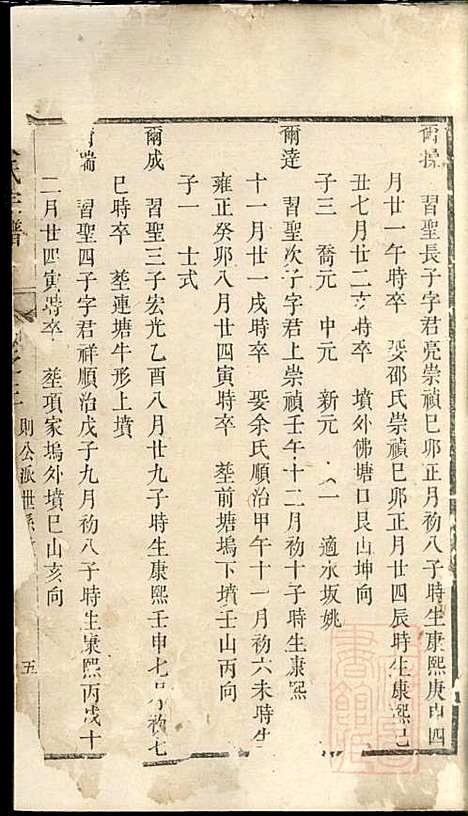 爾操　習聖長子字君亮崇禎己卯正月初八子時生康熙庚申四
月廿一午時卒　娶邵氏崇禎己卯正月廿四辰時生康熙己
丑七月廿二亥時卒　墳外佛塘口艮山坤向
子三　喬元　中元　新元　女一　適水坂姚
爾達　習聖次子字君上崇禎壬午十二月初十子時生康熙
十一月廿一戌時卒　娶余氏順治甲午十一月初六未時生
雍正癸卯八月廿四寅時卒　塟前塘塢下墳壬山丙向
子一　士式
爾成　習聖三子宏光乙酉八月廿九子時生康熙壬申七月初七
巳時卒　塟連塘牛形上墳
爾端　習聖四子字君祥順治戊子九月初八子時生康熙丙戌十
二月廿四寅時卒　塟項家塢外墳巳山亥向
氏宗譜
則公派世系
五